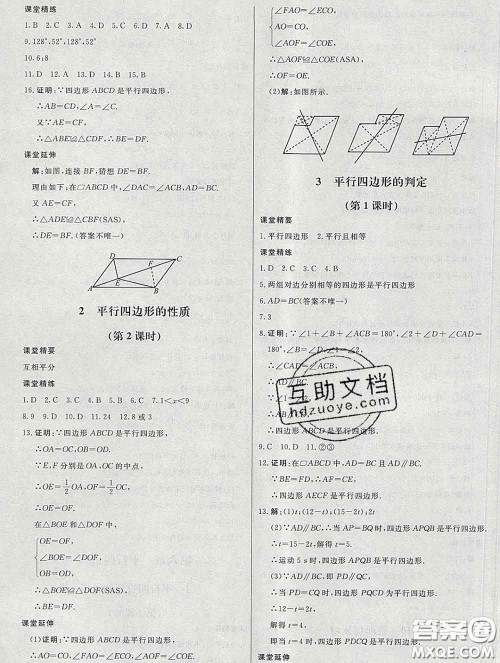 课堂精练
1. B 2. C 3. B 4. C 5. D 6. A 7. B 8. D
9. 128°,52°,128°,52°
10. 6;8
11. D 12. A 13. D 14. D 15. B
16. 证明:∵四边形 ABCD 是平行四边形,
∴AB=CD,∠A=∠C.
又∵AE=CF,
∴△ADE≌△CBF,∴BE=DF.
课堂延伸
解:如图,连接 BF,猜想 DE=BF.
理由如下:在□ABCD 中,
∵AB∥CD,AB=CD,∴∠DCA=∠BAC.
又∵AE=CF,
∴△AED≌△CBF(SAS),
∴DE=BF.(答案不唯一)
D C
F
E
A B
2 平行四边形的性质
(第 2 课时)
课堂精要
互相平分
课堂精练
1. D 2. C 3. C 4. A 5. D 6. B 7. 1<x<9
8. 9 9. D 10. D 11. 24 12. 8或3
13. 证明:∵四边形 ABCD 是平行四边形,
∴OA=OC,OB=OD.
∵E,F分别是 OA,OC 的中点,
∴OE=1/2OA,OF=1/2OC,
∴OE=OF.
在△BOE 和△DOF 中,
OE=OF,
∠BOE=∠DOF,
OB=OD,
∴△BOE≌△DOF(SAS),
∴BE=DF.
课堂延伸
(1)证明:∵四边形 ABCD 是平行四边形,
∠FAO=∠ECO,
AO=CO,
∠AOF=∠COE,
∴△AOF≌△COE(ASA),
∴OF=OE.
(2)解:如图所示.
3 平行四边形的判定
(第 1 课时)
课堂精要
1. 平行四边形 2. 平行且相等
课堂精练
1. D 2. C 3. D 4. C
5. 两组对边分别相等的四边形是平行四边形
6. AD=BC(答案不唯一)
7. 3
8. 证明:∵∠1+∠B+∠ACB=∠2+∠D+∠CAD=
180°,∠B=∠D,∠1=∠2,
9. C 10. D 11. ②③
12. 证明:在□ABCD 中,AD∥BC,
∴四边形 AECF 是平行四边形.
13. 解:(1)t;(12-2t);(15-2t);
(2)∵AD∥BC,∴当 AP=BQ 时,四边形 APQB 是平行四边形,
∴t=15-2t,解得 t=5.
∴运动 5s 时,四边形 APQB 是平行四边形.
∵AD∥BC,
∴当 PD=QC 时,四边形 PDCQ 为平行四边形.
解得 t=4,
即当 t=4 时,四边形 PDCQ 是平行四边形.
课堂延伸
互助文档
hdzuoye.com
答案圈
MXQE.COM